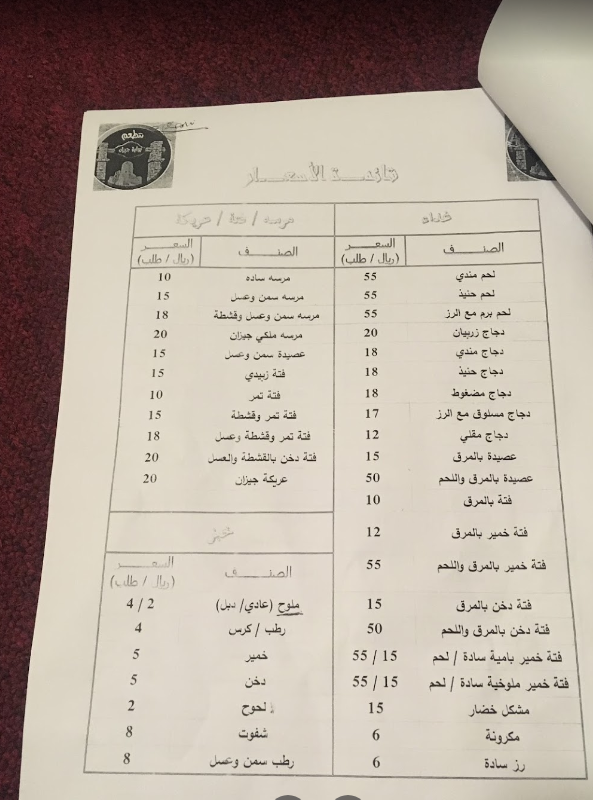 مطعم
قائمة الأسعار
غداء
الصنف السعر (ريال / طلب)
لحم مندي 55
لحم حنيذ 55
لحم برم مع الرز 55
دجاج زربيان 20
دجاج مندي 18
دجاج حنيذ 18
دجاج مضغوط 18
دجاج مسلوق مع الرز 17
دجاج مقلي 12
عصيدة بالمرق 15
عصيدة بالمرق واللحم 50
فتة بالمرق 10
فتة خمير بالمرق 12
فتة خمير بالمرق واللحم 55
فتة دخن بالمرق 15
فتة دخن بالمرق واللحم 50
فتة خمير بامية سادة / لحم 15 / 55
فتة خمير ملوخية سادة / لحم 15 / 55
مشكل خضار 15
مكرونة 6
رز سادة 6
مرسه / فتة / عريكة
الصنف السعر (ريال / طلب)
مرسه ساده 10
مرسه سمن وعسل 15
مرسه سمن وعسل وقشطة 18
مرسه ملكي جيزان 20
عصيدة سمن وعسل 15
فتة زبيدي 15
فتة تمر 10
فتة تمر وقشطة 15
فتة تمر وقشطة وعسل 18
فتة دخن بالقشطة والعسل 20
عريكة جيزان 20
خبز
الصنف السعر (ريال / طلب)
ملوح (عادي/ دبل) 2 / 4
رطب / كرس 4
خمير 5
دخن 5
لحوح 2
شفوت 8
رطب سمن وعسل 8